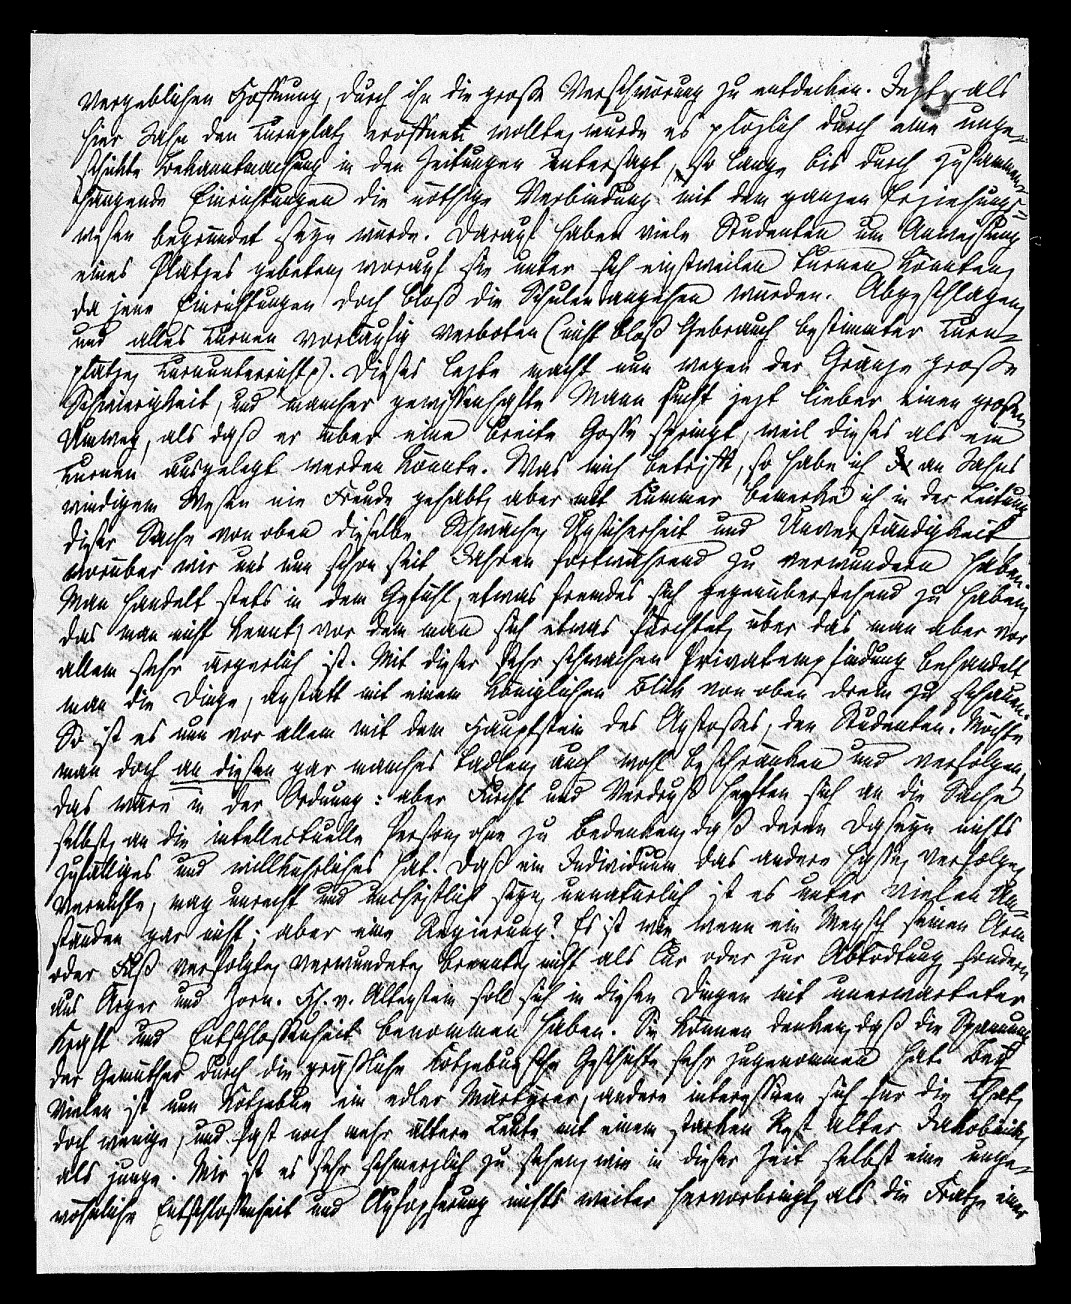 vergeblichen Hoffnung, durch ihn die große Verschwörung zu entdecken. Jezt, als
hier Jahn den Turnplatz eröffnen wollte, wurde es plözlich durch eine unge-
schickte Bekanntmachung in den Zeitungen untersagt, so lange bis durch zusammen-
hängende Einrichtungen die nöthige Verbindung mit dem ganzen Erziehungs-
wesen begründet seyn würde. Darauf haben viele Studenten um Anweisung
eines Platzes gebeten, worauf sie unter sich einstweilen turnen könnten,
da jene Einrichtungen doch bloß die Schulen angehen würden. Abgeschlagen,
und alles Turnen vorläufig verboten (nicht bloß Gebrauch bestimmter Turn-
plätze, Turnunterricht). Dieses lezte macht nun wegen der Gränze große
Schwierigkeit, und mancher gewissenhafte Mann sucht jezt lieber einen großen
Umweg, als daß er über eine breite Gosse springt, weil dieses als ein
Turnen ausgelegt werden könnte. Was mich betrifft, so habe ich an Jahns
windigem Wesen nie Freude gehabt, aber mit Kummer bemerke ich in der Leitung
dieser Sache von oben dieselbe Schwäche, Unsicherheit und Unverständigkeit,
worüber wir uns nun schon seit Jahren fortwährend zu verwundern haben.
Man handelt stets in dem Gefühl, etwas fremdes sich gegenüberstehend zu haben,
das man nicht kennt, vor dem man sich etwas fürchtet, über das man aber vor
allem sehr ärgerlich ist. Mit dieser sehr schwachen Privatempfindung behandelt
man die Dinge, anstatt mit einem königlichen Blick von oben drein zu schauen.
So ist es nun vor allem mit dem Hauptstein des Anstoßes, den Studenten. Möchte
man doch an diesen gar manches tadlen, auch wohl beschränken und verfolgen,
das wäre in der Ordnung: aber Furcht und Verdruß heften sich an die Sache
selbst, an die intellectuelle Person, ohne zu bedenken, daß deren Daseyn nichts
zufälliges und willkührliches hat. Daß ein Individuum das andere hasse, verfolge,
vernichte, mag unrecht und unchristlich seyn, unnatürlich ist es unter vielen Um-
ständen gar nicht; aber eine Regierung? Es ist wie wenn ein Mensch seinen Arm
oder Fuß verfolgte, verwundete, brennte, nicht als Cur oder zur Abtödtung, sondern
aus Ärger und Zorn. H. v. Altenstein soll sich in diesen Dingen mit unerwarteter
Kraft und Entschlossenheit benommen haben. Sie können denken, daß die Spannung
der Gemüther durch die gräßliche Kotzebuesche Geschichte sehr zugenommen hat. Bey
Vielen ist nun Kotzebue ein edler Märtyrer, andere interessiren sich für die That,
doch wenige, und fast noch mehr ältere Leute mit einem starken Rest alter Jakobinik,
als junge. Mir ist es sehr schmerzlich zu sehen, wie in dieser Zeit selbst eine unge-
wöhnliche Entschlossenheit und Aufopferung nichts weiter hervorbringt, als die Fratze einer